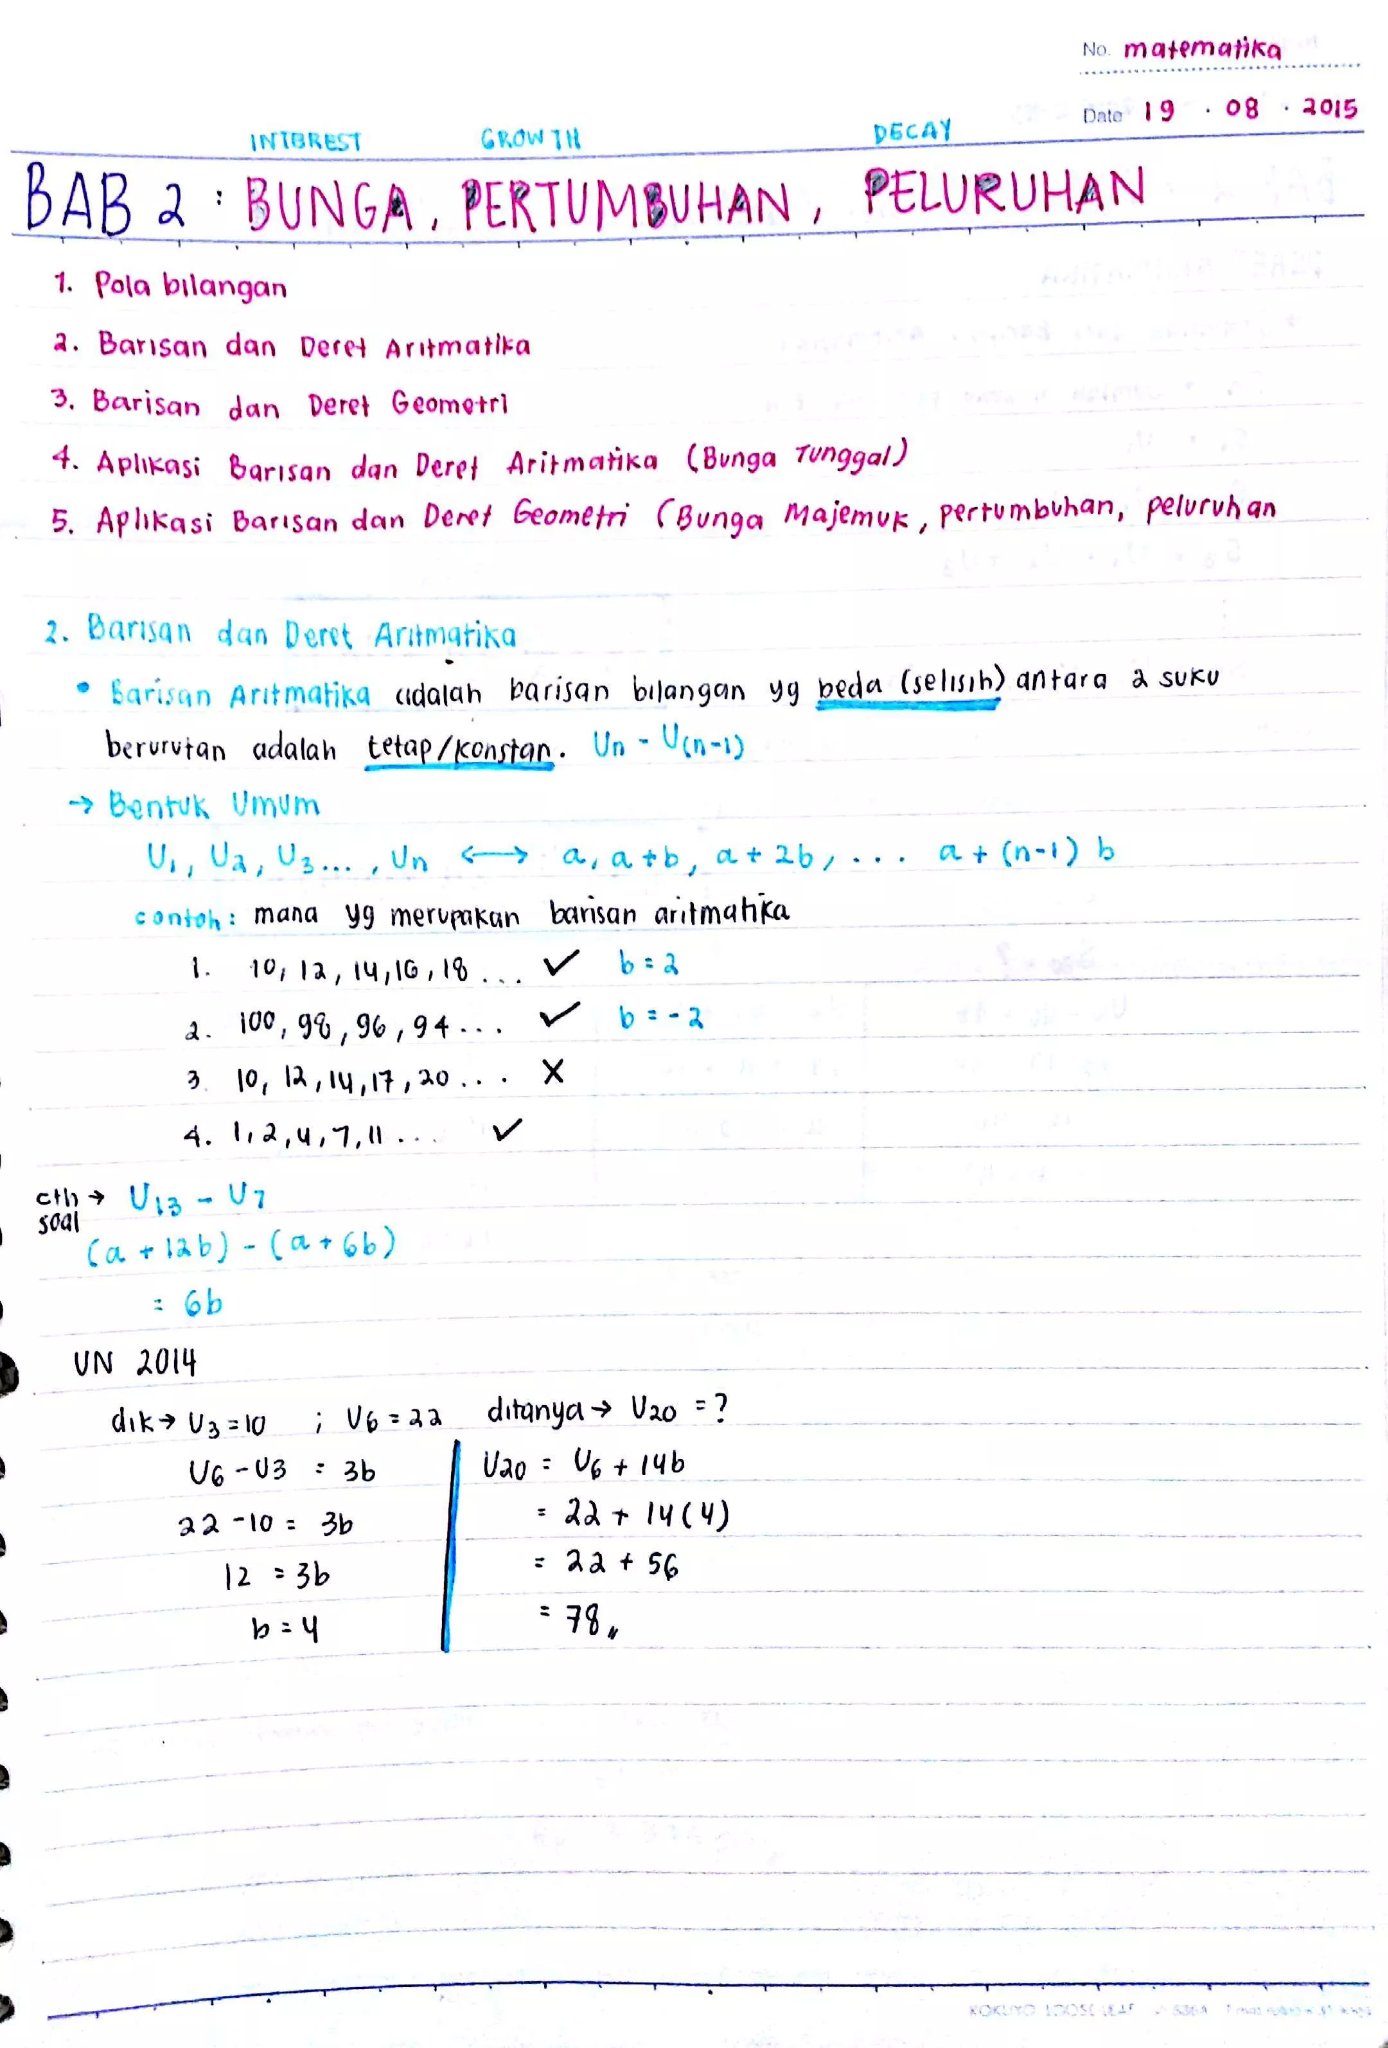 No. matematika
Date 19 . 08 . 2015
INTEREST GROWTH DECAY
BAB 2 : BUNGA, PERTUMBUHAN, PELURUHAN
1. Pola bilangan
2. Barisan dan Deret Aritmatika
3. Barisan dan Deret Geometri
4. Aplikasi Barisan dan Deret Aritmatika (Bunga Tunggal)
5. Aplikasi Barisan dan Deret Geometri (Bunga Majemuk, pertumbuhan, peluruhan
2. Barisan dan Deret Aritmatika
• Barisan Aritmatika adalah barisan bilangan yg beda (selisih) antara 2 suku
berurutan adalah tetap/konstan. Un - U(n-1)
→ Bentuk Umum
U1, U2, U3..., Un ⟷ a, a+b, a+2b, ... a + (n-1) b
contoh: mana yg merupakan barisan aritmatika
1. 10, 12, 14, 16, 18 ... ✓ b = 2
2. 100, 98, 96, 94 ... ✓ b = -2
3. 10, 12, 14, 17, 20 ... X
4. 1, 2, 4, 7, 11 ... ✓
cth → U13 - U7
soal
(a + 12b) - (a + 6b)
= 6b
UN 2014
dik → U3 = 10 ; U6 = 22 ditanya → U20 = ?
U6 - U3 = 3b
22 - 10 = 3b
12 = 3b
b = 4
U20 = U6 + 14b
= 22 + 14(4)
= 22 + 56
= 78,,
KOKUYO LOOSE LEAF